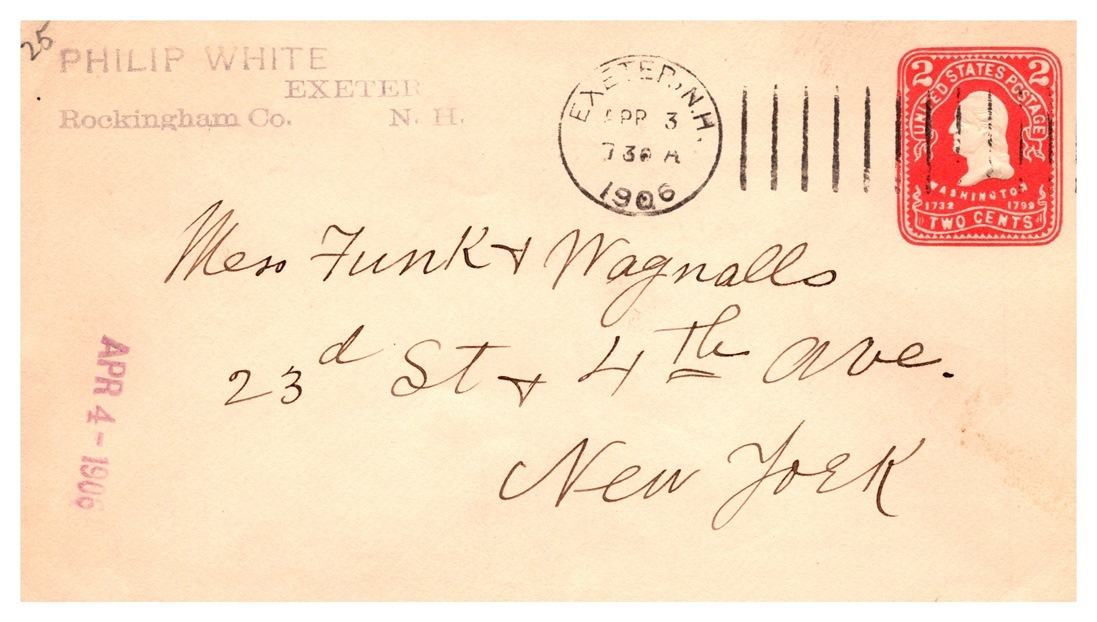 25
PHILIP WHITE
EXETER
Rockingham Co. N. H.
EXETER, N.H.
APR 3
730 A
1906
2 2
UNITED STATES POSTAGE
WASHINGTON
1732 1799
TWO CENTS
Mess Funk & Wagnalls
23d St & 4th Ave.
New York
APR 4 - 1906